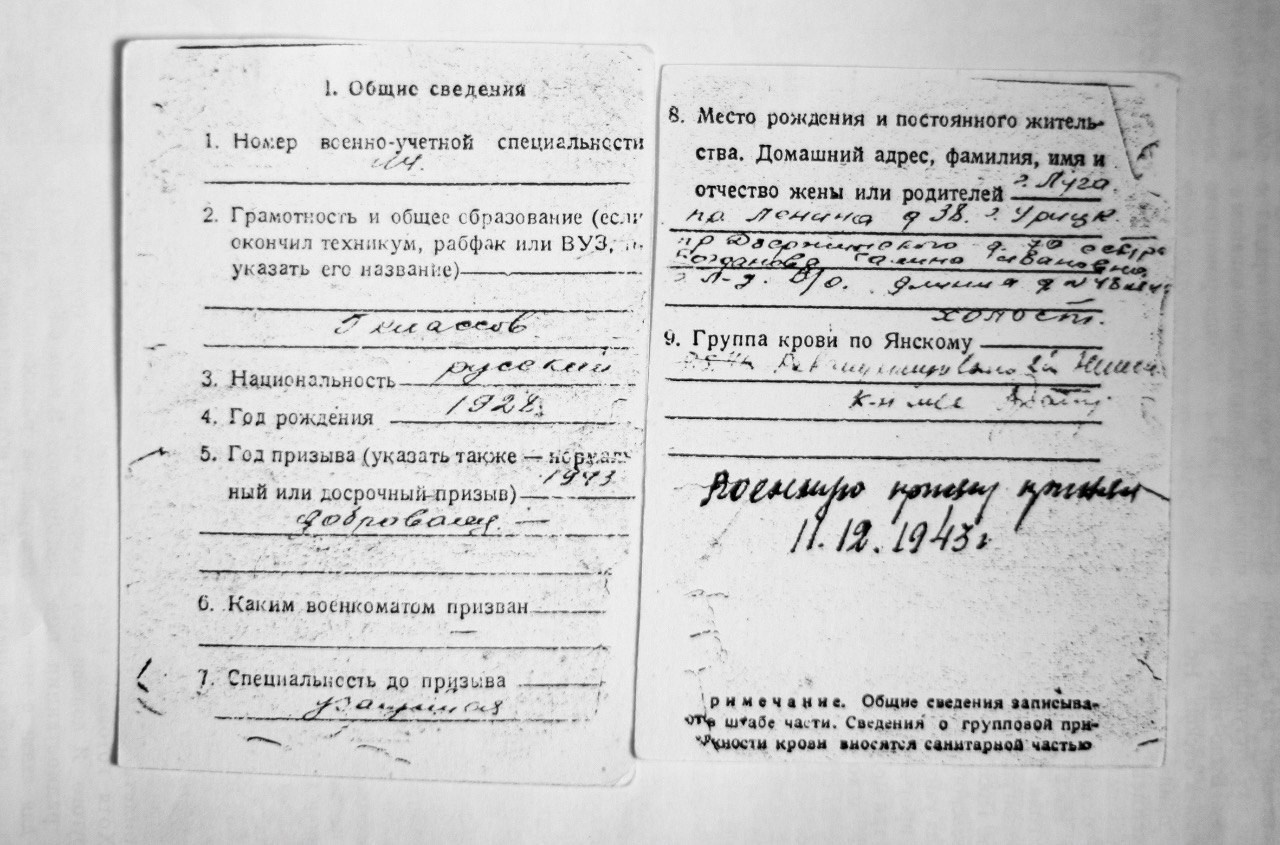 1. Общие сведения
1. Номер военно-учетной специальности
2. Грамотность и общее образование (если
окончил техникум, рабфак или ВУЗ,
указать его название)
классов
3. Национальность русский
4. Год рождения 1928
5. Год призыва (указать также — нормаль-
ный или досрочный призыв) 1943
6. Каким военкоматом призван
7. Специальность до призыва
8. Место рождения и постоянного житель-
ства. Домашний адрес, фамилия, имя и
отчество жены или родителей г. Луга
пр Ленина д 38. г. Урицк
пр Дзержинского д.
Богданова Галина Ивановна
холост.
9. Группа крови по Янскому
Военную присягу принял
11.12.1943 г
римечание. Общие сведения записыва-
штабе части. Сведения о групповой при-
жности крови вносятся санитарной частью